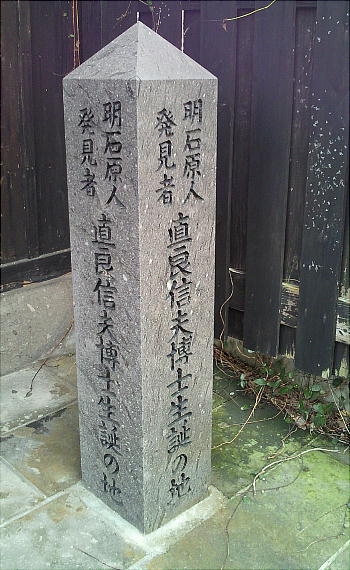 明石原人
発見者
直良信夫博士生誕の地
明石原人
発見者
直良信夫博士生誕の地